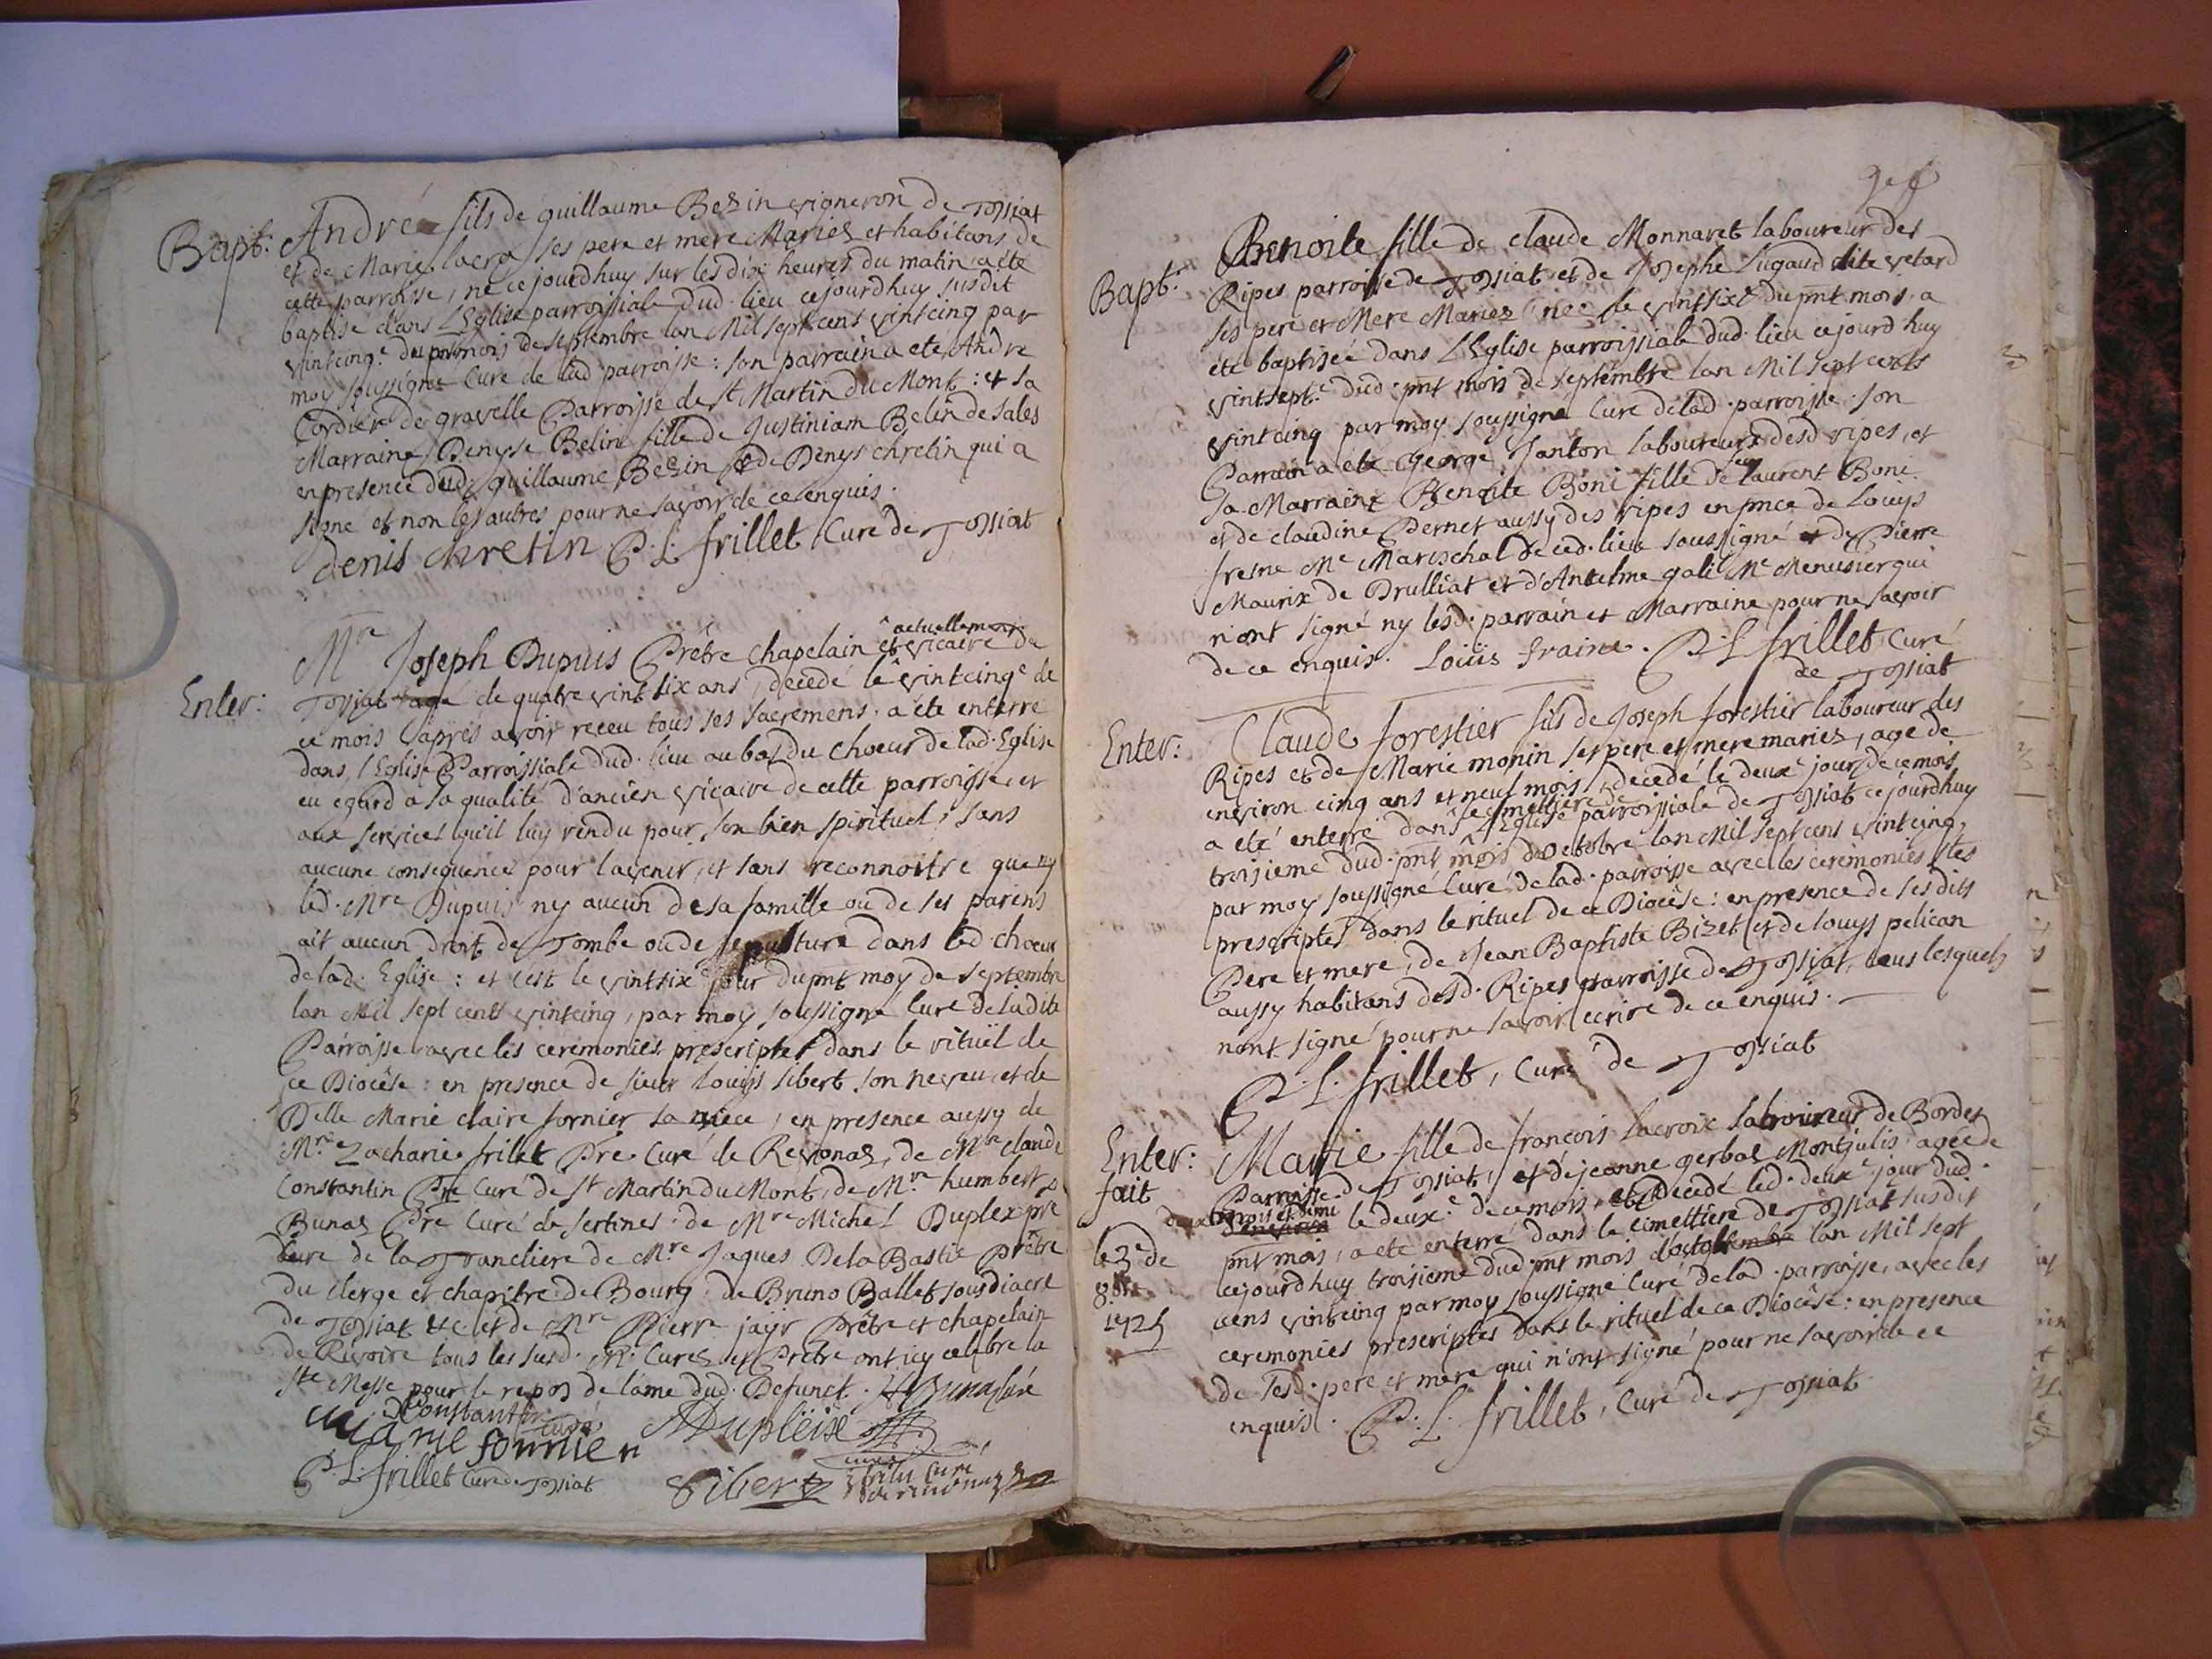 Bapt: André fils de guillaume Bezin vigneron de Tossiat
et de Marie lacra ses pere et mere Mariez et habitans de
cette parroisse, né cejourdhuy sur les dix heures du matin a eté
baptisé dans L'Eglise parroissiale dud. lieu cejourdhuy susdit
vintcinqe du pnt mois de septembre lan Mil sept cent vintcinq par
moy soussigné Curé de lad parroisse: son parrain a eté André
Cordier de gravelle Parroisse de St Martin du Mont: et sa
Marraine Denyse Belin fille de Justiniam Belin de sales
en presence dud. guillaume Bezin et de Denys chretin qui a
signé et non les autres pour ne savoir de ce enquis.
denis chretin P. L. frillet Curé de Tossiat
Enter: Mre Joseph Dupuis Prêtre chapelain et vicaire de
actuellement
Tossiat agé de quatre vint six ans, decedé le vintcinqe de
ce mois apres avoir receu tous ses sacremens. a eté enterré
dans l'Eglise Parroissiale dud. lieu au bas du choeur de lad. Eglise
eu egard a sa qualité d'ancien vicaire de cette parroisse et
aux services qu'il luy rendu pour son bien spirituel; sans
aucune consequence pour l'avenir, et sans reconnoitre que ny
led. Mre Dupuis ny aucun de sa famille ou de ses parens
ait aucun droit de Tombe ou de sepulture dans led. choeur
de lad. Eglise: et c'est le vintsixe jour du pnt moy de septembre
lan Mil sept cents vintcinq, par moy soussigné Curé de ladite
Parroisse avec les ceremonies prescriptes dans le rituël de
ce Diocêse: en presence de sieur Louijs sibert son neveu et de
Delle Marie claire fornier sa niece, en presence aussy de
Mre Zacharie frillet Pre Curé de Revonas, de Mre claude
Constantin Pre Curé de St Martin du Mont, de Mre humbert
Bunaz Pre Curé de sertines. de Mre Michel Duplex pre
Curé de la Trancliere de Mre Jaques De la Bastie prêtre
du clergé et chapitre de Bourg. de Bruno Ballet sousdiacre
de Tossiat &c et de Mre Pierre jaÿr Prêtre et chapelain
de Rivoire tous les susd. Curez et Prêtre ont icy celebré la
ste Messe pour le repos de l'ame dud. Defunct. Bunaz curé
Constantin curé
marie fournier Dupleix
curé
P. L. frillet Curé de Tossiat Sibert frilet Curé
de revonaz
Bapt: Benoite fille de claude Monnaret laboureur des
Ripes parroisse de Tossiat et de Josephe sugaud dite vetard
ses pere et Mere Mariez née le vintsixe du pnt mois a
eté baptisée dans L'Eglise parroissiale dud. lieu cejourdhuy
vintsepte dud. pnt mois de septembre lan Mil sept cents
vintcinq par moy soussigné Curé de lad. parroisse. son
Parrain a eté George Janton laboureur desd ripes, et
sa Marraine Benoite Boni fille de laurent Boni
et de claudine Pernet aussy des ripes en pnce de Louijs
fresne Me Marischal de ced. lieu soussigné et de Pierre
Maurix de Drulliat et d'Antelme gali Me Menusier qui
n'ont signé ny lesd. parrain et Marraine pour ne savoir
de ce enquis. Loüis fraine. P. L. frillet Curé
de Tossiat
Enter: Claude forestier fils de Joseph forestier laboureur des
Ripes et de Marie monin ses pere et mere mariez, agé de
environ cinq ans et neuf mois, decedé le deuxe jour de ce mois
a eté enterré dans le cimettiere de L'Eglise parroissiale de Tossiat cejourdhuy
troisieme dud. pnt mois d'octobre lan Mil sept cent vintcinq,
par moy soussigné Curé de lad. parroisse avec les ceremonies stes
prescriptes dans le rituel de ce Diocêse: en presence de ses dits
Pere et mere, de Jean Baptiste Bizet et de louys pelican
aussy habitans desd. Ripes parroisse de Tossiat, tous lesquels
nont signé pour ne savoir ecrire de ce enquis.
P. L. frillet, Curé de Tossiat
Enter: Marie fille de françois lacroix laboureur de Bordes
fait Parroisse de Tossiat, et de jeanne gerbal Montjulis, agée de
deux trois et demi le deuxe de ce mois, et decedé led. deuxe jour dud.
le 3e de pnt mois, a eté enterré dans le cimettiere de Tossiat susdit
8bre cejourdhuy troisieme dud. pnt mois d'octobre lan Mil sept
1725 cens vintcinq par moy soussigné Curé de lad. parroisse, avec les
ceremonies prescriptes dans le rituel de ce Diocêse: en presence
de sesd. pere et mere qui n'ont signé pour ne savoir de ce
enquis. P. L. frillet, Curé de Tossiat